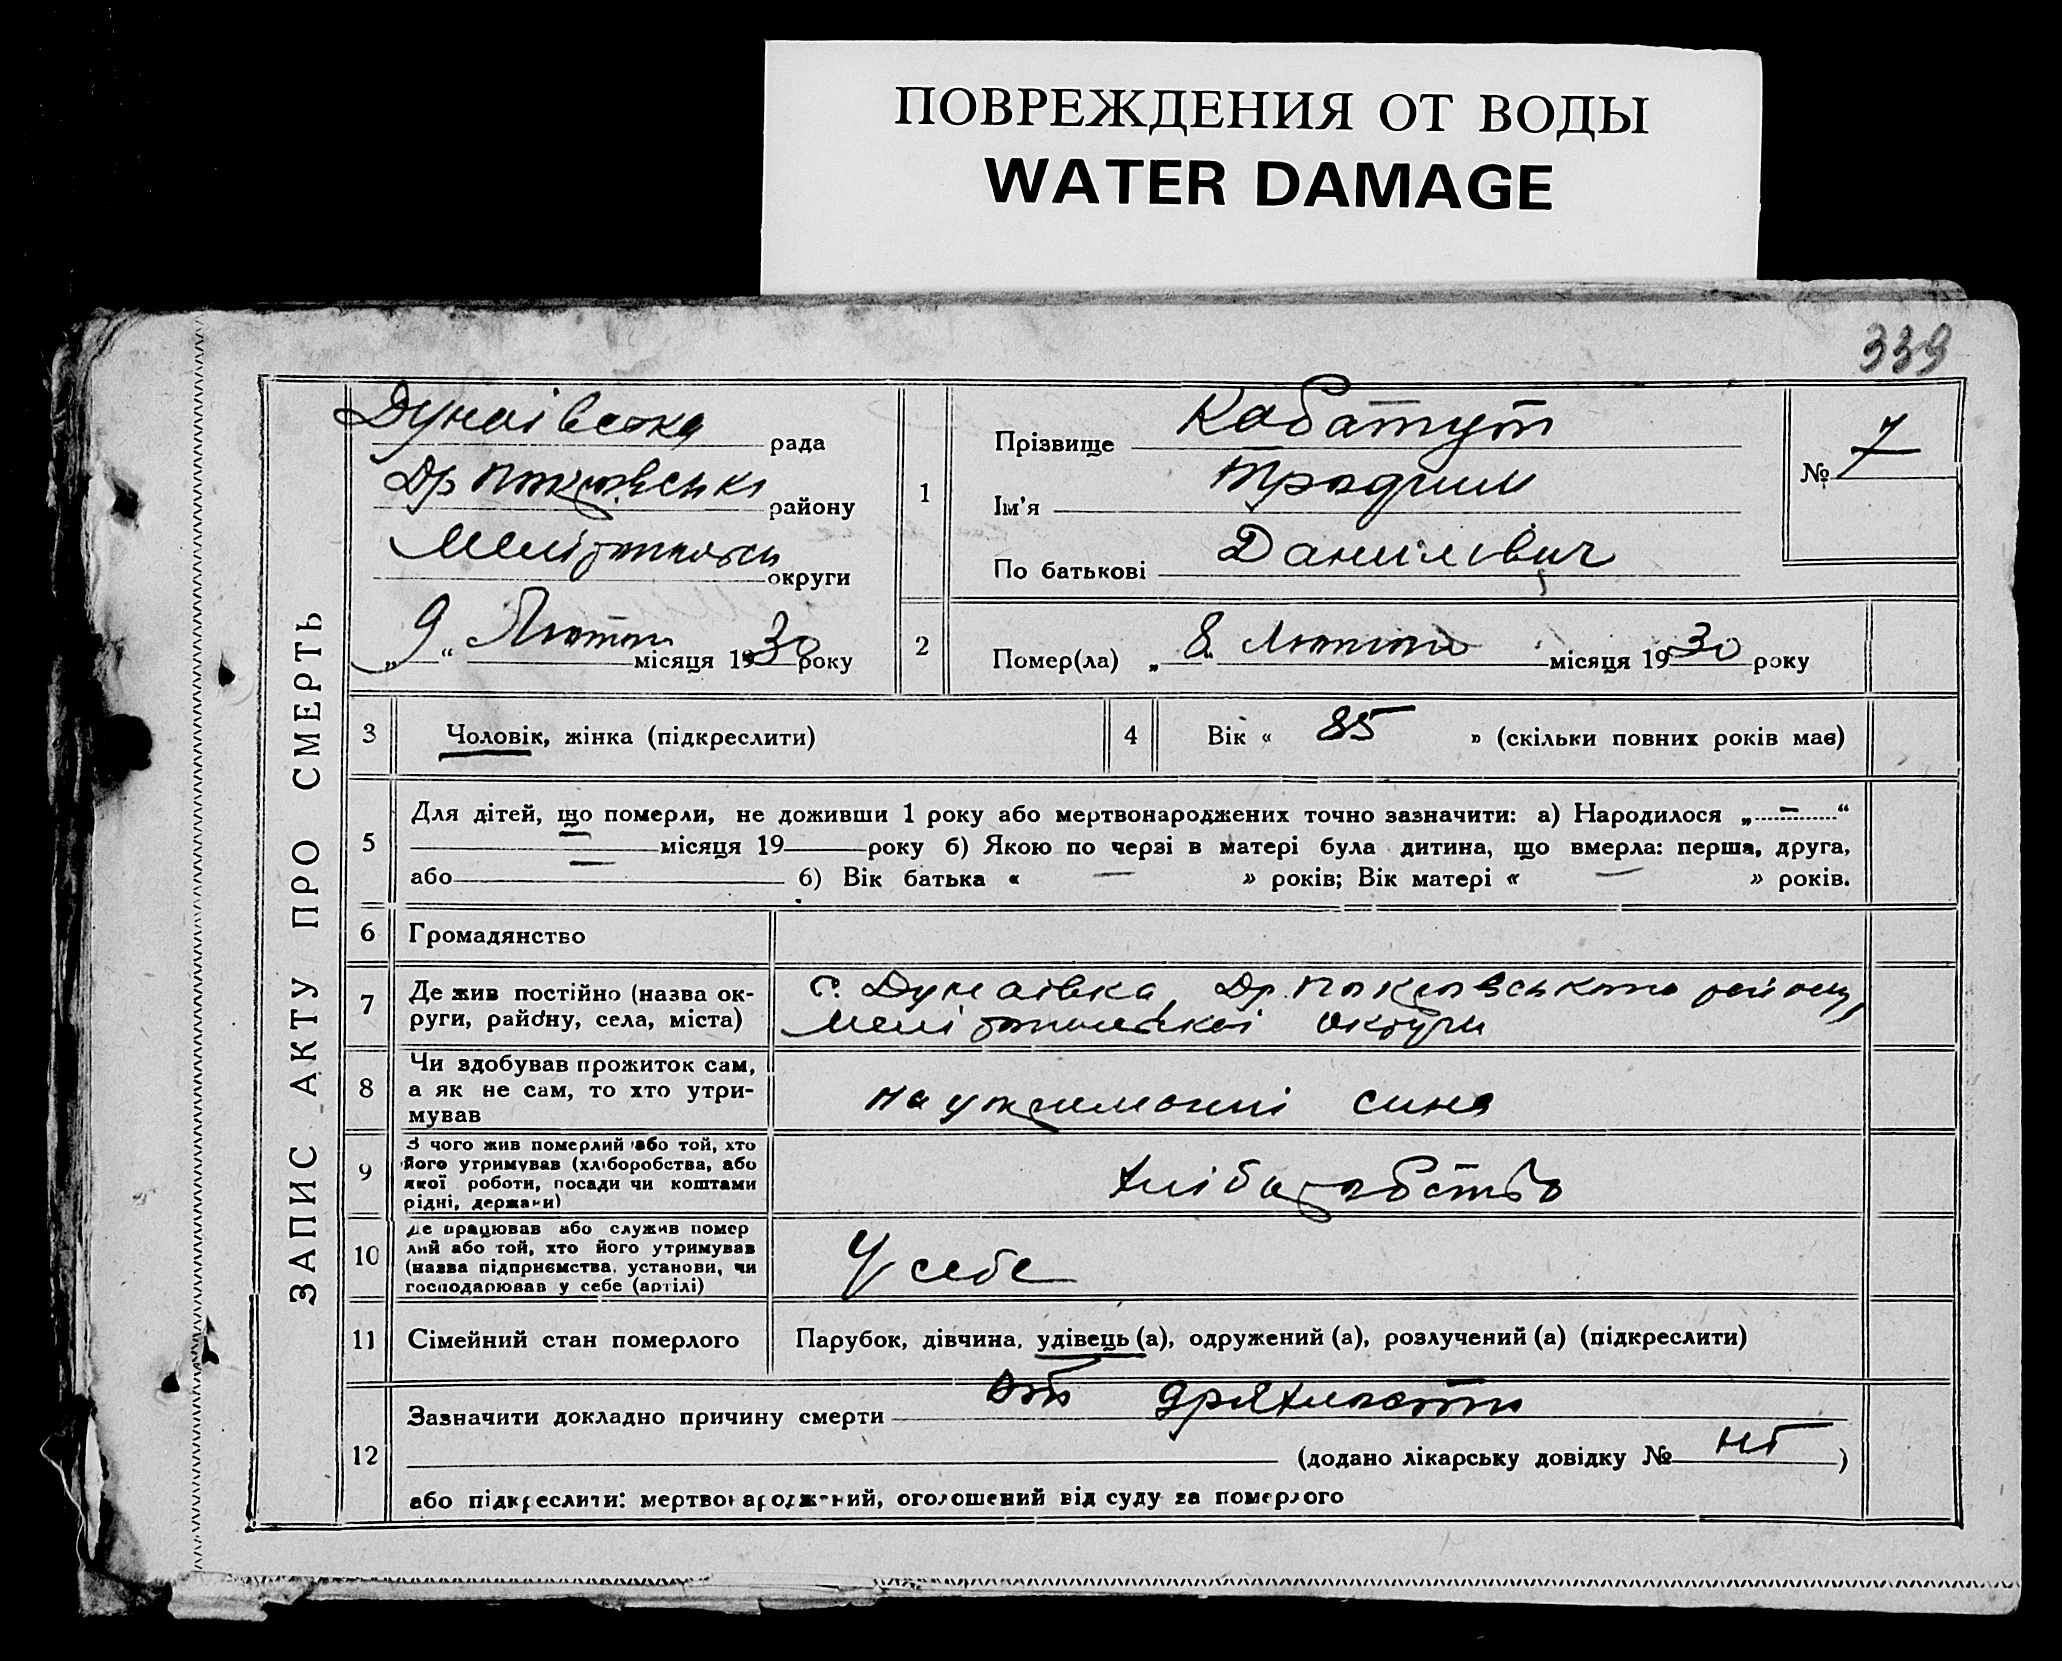 ПОВРЕЖДЕНИЯ ОТ ВОДЫ
WATER DAMAGE
339
ЗАПИС АКТУ ПРО СМЕРТЬ
Дунаівська рада
району
округи
„ 9 “ Лютого місяця 1930 року
1
Прізвище Кабатут
Ім’я Трофим
По батькові Данилович
№ 7
2
Помер(ла) „ 8 “ Лютого місяця 1930 року
3 Чоловік, жінка (підкреслити)
4 Вік « 85 » (скільки повних років має)
5
Для дітей, що померли, не доживши 1 року або мертвонароджених точно зазначити: а) Народилося „ — “
— місяця 19 року б) Якою по черзі в матері була дитина, що вмерла: перша, друга,
або — б) Вік батька « — » років; Вік матері « — » років.
6 Громадянство
7
Де жив постійно (назва ок-
руги, району, села, міста)
с. Дунаівка, Др. Покровського району,
Мелітопольскоі округи
8
Чи здобував прожиток сам,
а як не сам, то хто утри-
мував
на утриманні сина
9
З чого жив померлий або той, хто
його утримував (хліборобства, або
якої роботи, посади чи коштами
рідні, держави)
Хліборобство
10
Де працював або служив помер
лий або той, хто його утримував
(назва підприємства, установи, чи
господарював у себе (артілі)
У себе
11 Сімейний стан померлого
Парубок, дівчина, удівець (а), одружений (а), розлучений (а) (підкреслити)
12
Зазначити докладно причину смерти от дряхлости
(додано лікарську довідку № )
або підкреслити: мертвонароджений, оголошений від суду за померлого